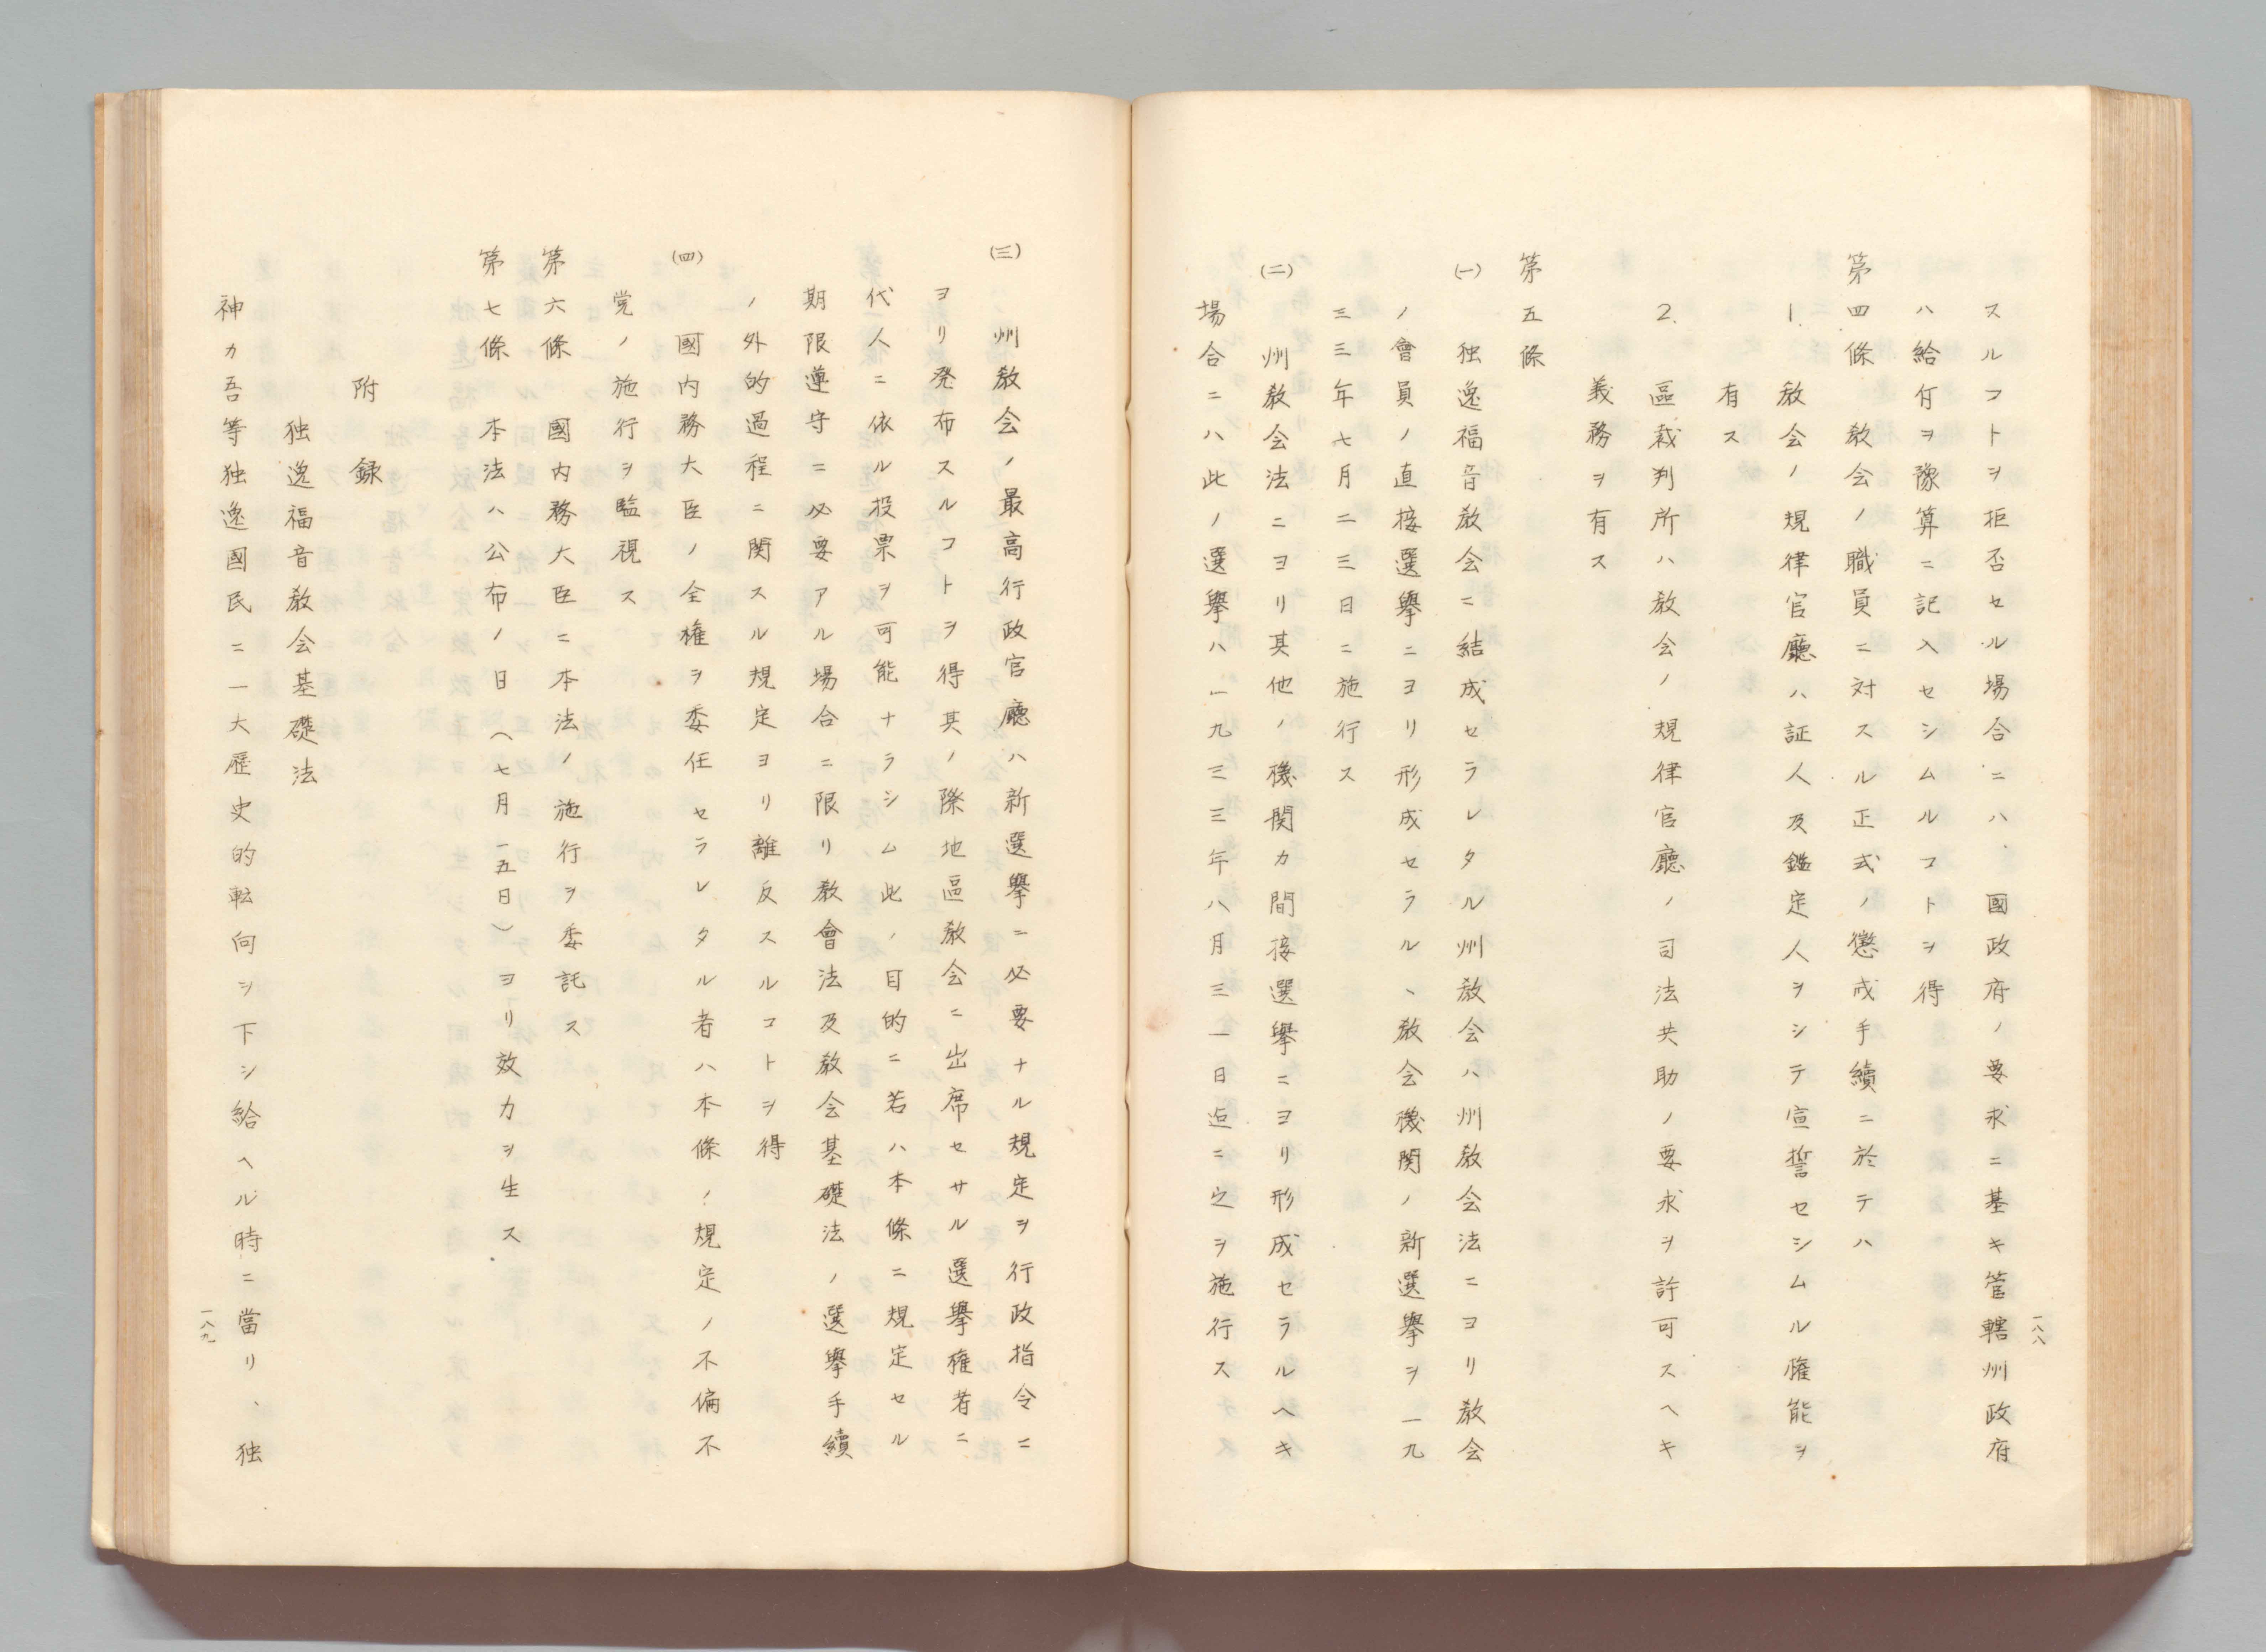 一八八
スルコトヲ拒否セル場合ニハ、國政府ノ要求ニ基キ管轄州政府
ハ給付ヲ豫算ニ記入セシムルコトヲ得
第四條　教会ノ職員ニ対スル正式ノ懲戒手續ニ於テハ
1. 教会ノ規律官廳ハ証人及鑑定人ヲシテ宣誓セシムル権能ヲ
有ス
2. 區裁判所ハ教会ノ規律官廳ノ司法共助ノ要求ヲ許可スヘキ
義務ヲ有ス
第五條
(一)　独逸福音教会ニ結成セラレタル州教会ハ州教会法ニヨリ教会
ノ會員ノ直接選擧ニヨリ形成セラル、教会機関ノ新選擧ヲ一九
三三年七月二三日ニ施行ス
(二)　州教会法ニヨリ其他ノ機関カ間接選擧ニヨリ形成セラルヘキ
場合ニハ此ノ選擧ハ一九三三年八月三一日迠ニ之ヲ施行ス
(三)　州教会ノ最高行政官廳ハ新選擧ニ必要ナル規定ヲ行政指令ニ
ヨリ発布スルコトヲ得其ノ際地區教会ニ出席セサル選擧権者ニ
代人ニ依ル投票ヲ可能ナラシム此ノ目的ニ若ハ本條ニ規定セル
期限遵守ニ必要アル場合ニ限リ教會法及教会基礎法ノ選擧手續
ノ外的過程ニ関スル規定ヨリ離反スルコトヲ得
(四)　國内務大臣ノ全権ヲ委任セラレタル者ハ本條ノ規定ノ不偏不
党ノ施行ヲ監視ス
第六條　國内務大臣ニ本法ノ施行ヲ委託ス
第七條　本法ハ公布ノ日（七月一五日）ヨリ效力ヲ生ス
附録
独逸福音教会基礎法
神カ吾等独逸國民ニ一大歴史的転向シ下シ給ヘル時ニ當リ、独
一八九